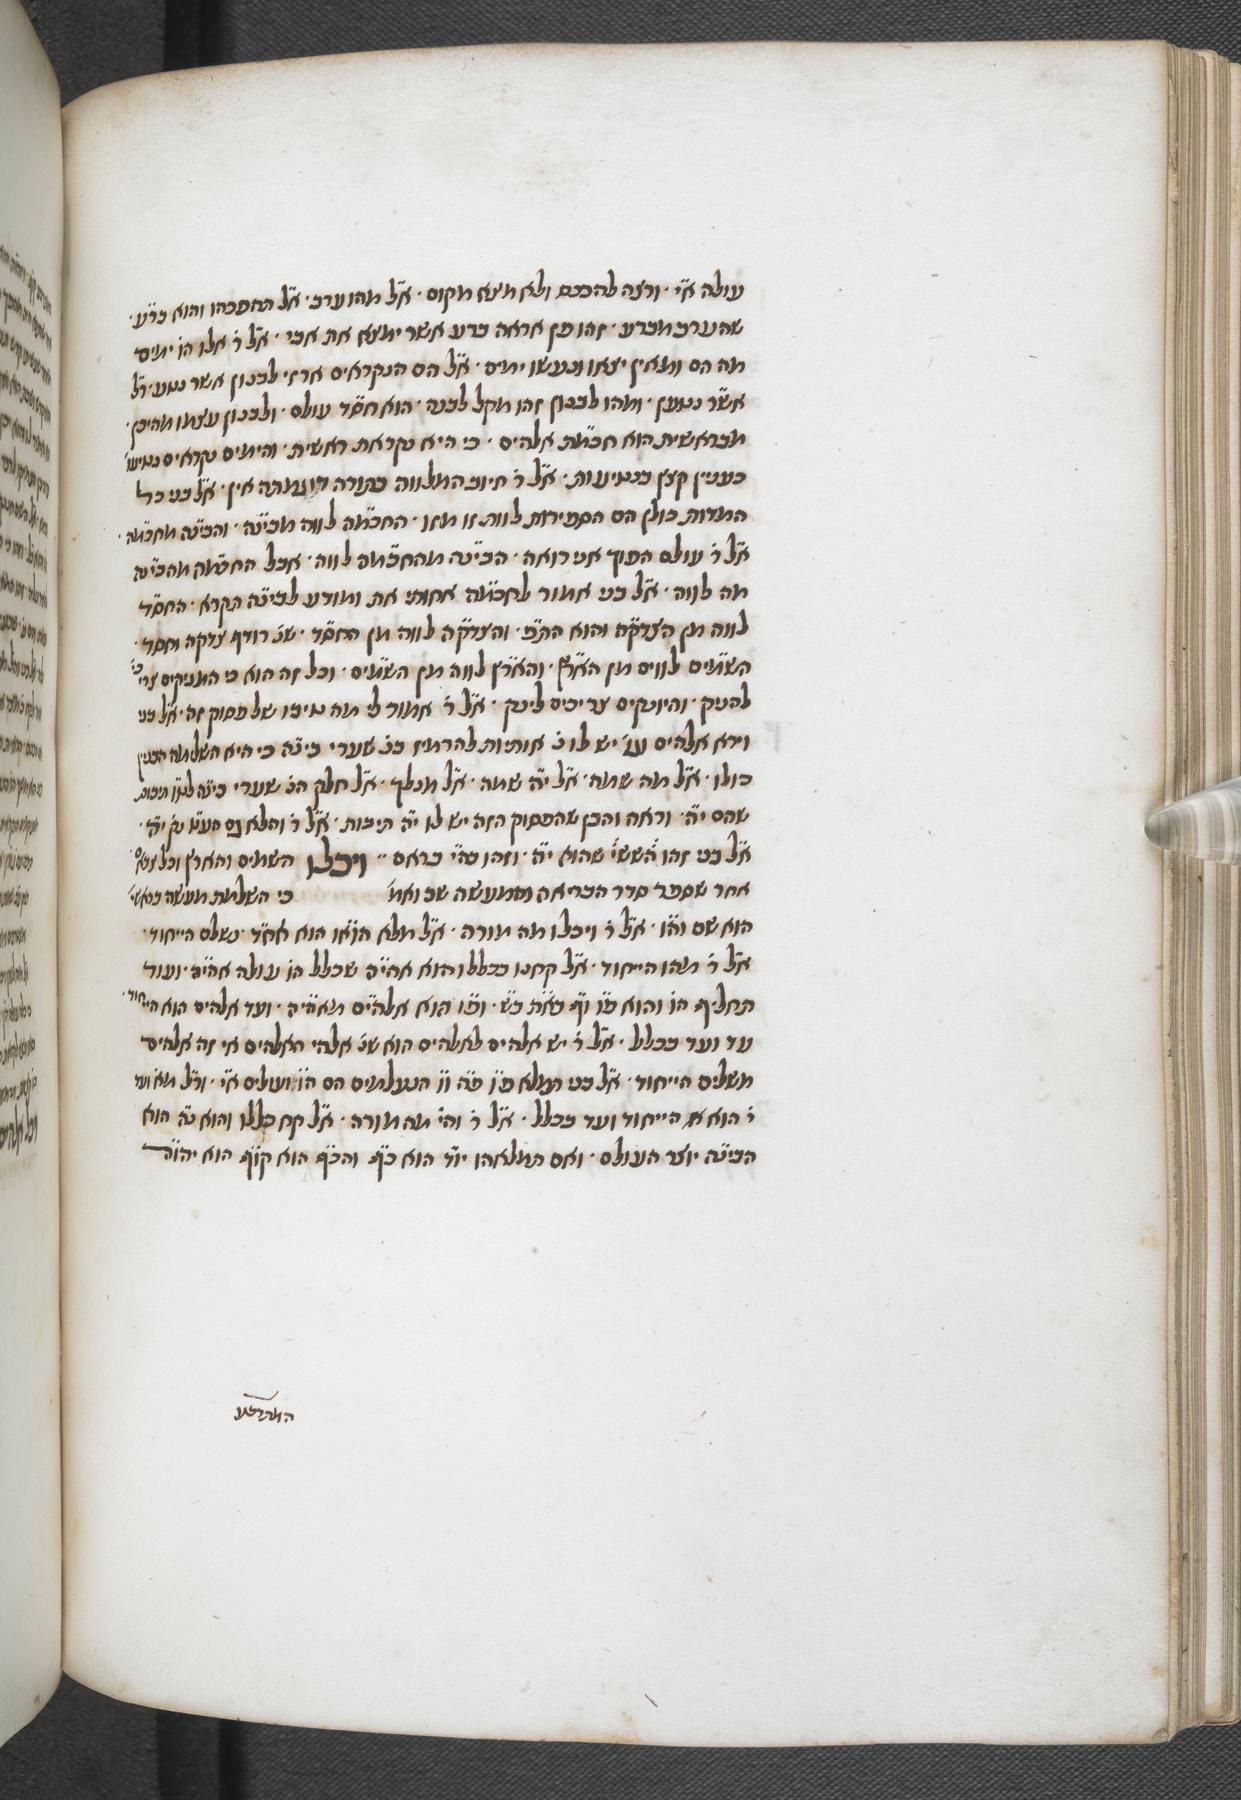 עולה א״י · ורצה להככם ולא מצא מקום · א״ל מהו ערב · א״ל תהפכהו והוא ברע ·
שה ערב מברע · זהו פן אראה ברע אשר ימצא את אבי · א״ל ר׳ אלו הו׳ ימים
מה הם ומאין יצאו ונעשו ימים · א״ל הם הנקראים ארזי לבנון אשר נטע · ר״ל
אשר נטען · ומהו לבנון זהו מקל לבנה · הוא חסד עולם · ולבנון עצמו מהיכן ·
מבראשית הוא חכמת אלהים · כי היא נקראת ראשית · והימים נקראים נטיעו׳
כענין קצץ בנטיעות · א״ל ר׳ חיוב המלוה בתורה דוגמתה אין · א״ל בני כל
המדות כולן הם הספירות לוות זו מזו · החכמה לוה מבינה · והבינה מחכמה ·
א״ל ר׳ עולם הפוך אני רואה · הבינה מהחכמה לווה · אבל החכמה מהבינה
מה לווה · א״ל בני אמור לחכמה אחותי את ומודע לבינה תקרא · החסד
לווה מן הצדקה והוא התפ׳ · והצדקה לווה מן החסד · שנ׳ רודף צדקה וחסד ·
השמים לווים מן הארץ · והארץ לווה מן השמים · וכל זה הוא כי המניקים צריכי׳
להניק · והיונקים צריכים לינק · א״ל ר׳ אמור לי מה טיבו של פסוק זה · א״ל בני
וירא אלהים יש לו נ׳ אותיות להרמיז בנ׳ שערי בינה כי היא השלימה הבנין
כולו · א״ל מה שמה · א״ל י״ה שמה · א״ל מנלך · א״ל חלק הנ׳ שערי בינה תיבות
שהם י״ה · וראה והבן שהפסוק הזה יש לו י״ה תיבות · א״ל ר׳ והלא גם
א״ל בני זהו הששי שהוא י״ה · וזהו בה״י בראם ·· ויכלו השמים והארץ וכל צבאם
אחר שספר סדר הבריאה וממעשה שב ואמ׳ כי השלמת מעשה בראשי׳
הוא שם וא״ו · א״ל ר׳ ויכלו מה מורה · א״ל מלא הוא״ו הוא אחד · נשלם הייחוד ·
א״ל ר׳ מהו הייחוד · א״ל קחנו בכללו והוא אהיה שכלל הו׳ עולה אהיה · ועוד
תחליף הו׳ והוא פ״ו ו״ף בא״ת ב״ש · ופ״ו הוא אלהים מאהיה · ועד אלהים הוא הייחוד ·
עד ועד בכלל · א״ל ר׳ יש אלהים לאלהים הוא שנ׳ אלהי האלהים אי זה אלהים
משלים הייחוד · א״ל בני תמלא הנעלמים הם הו׳ ועולים א״י · ור״ל
ר׳ הוא הייחוד ועד בכלל · א״ל ר׳ וה״י מה מורה · א״ל קח כללו והוא כ״ה הוא
הבינה יוצר העולם · ואם תמלאהו יו״ד הוא כ״ף והכ״ף הוא קו״ף הוא יהו״ה